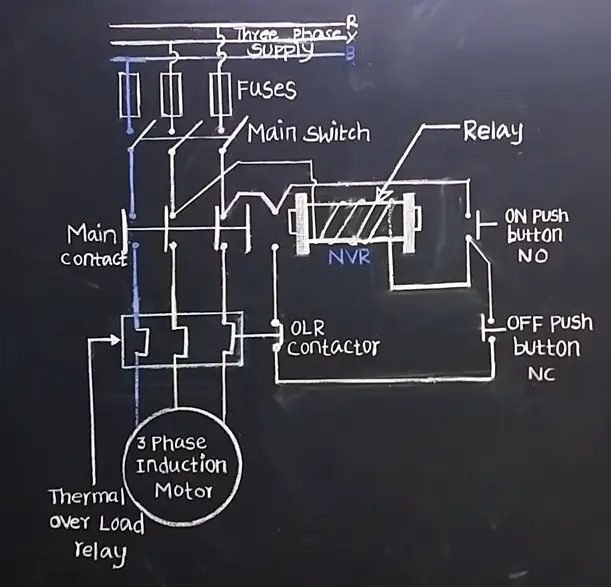 R
Three phase Y
Supply B
Fuses
Main switch
Relay
Main
contact
ON PUSH
button
NO
NVR
OFF PUSH
button
NC
OLR
contactor
3 Phase
Induction
Motor
Thermal
over Load
relay